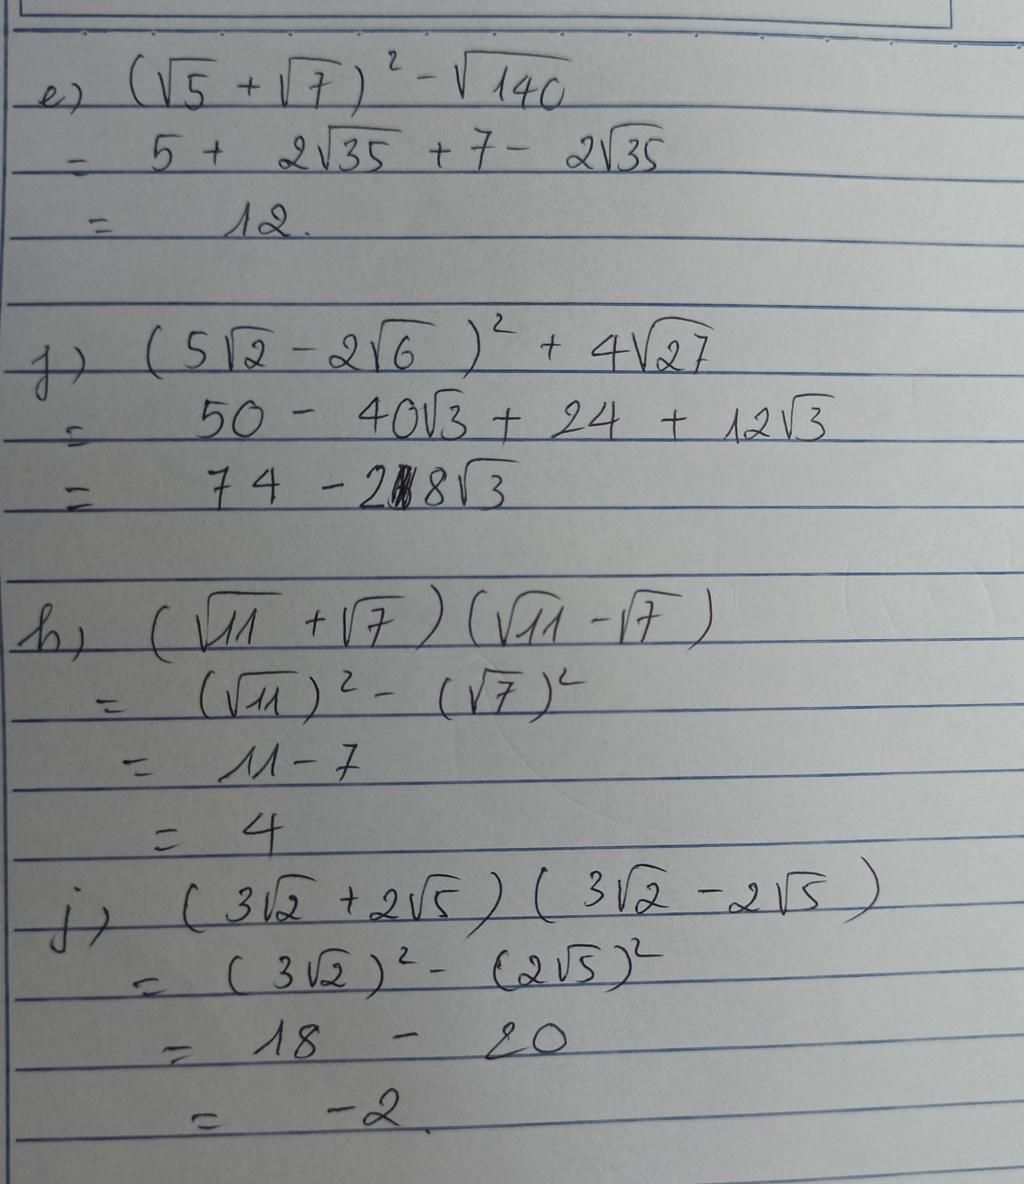 e) (√5 + √7)² - √140
= 5 + 2√35 + 7 - 2√35
= 12.
f) (5√2 - 2√6)² + 4√27
= 50 - 40√3 + 24 + 12√3
= 74 - 28√3
h) (√11 + √7)(√11 - √7)
= (√11)² - (√7)²
= 11 - 7
= 4
j) (3√2 + 2√5)(3√2 - 2√5)
= (3√2)² - (2√5)²
= 18 - 20
= -2.